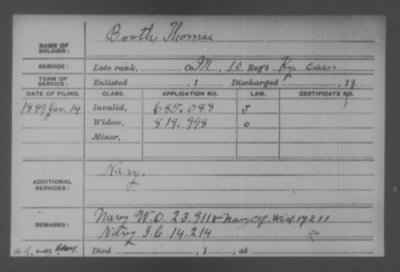 NAME OF SOLDIER: Booth, Thomas
SERVICE: Late rank, Co. M, 10 Reg't Ky. Cav.
TERM OF SERVICE: Enlisted , 1 Discharged , 1
DATE OF FILING. CLASS. APPLICATION NO. LAW. CERTIFICATE NO.
1889 Jan. 14 Invalid, 685.088 J
Widow, 819.998 o
Minor,
ADDITIONAL SERVICES: Navy.
REMARKS: Navy W.O. 23.911 & Navy Cf. Wid. 17211
I.C. 14.214
Died , 1 , at